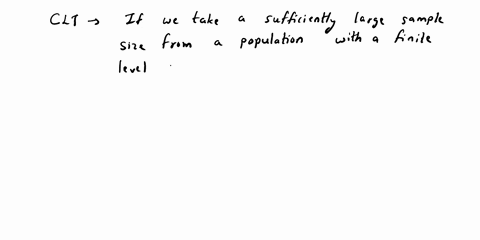 CLT → If we take a sufficiently large sample
size from a population with a finite
level